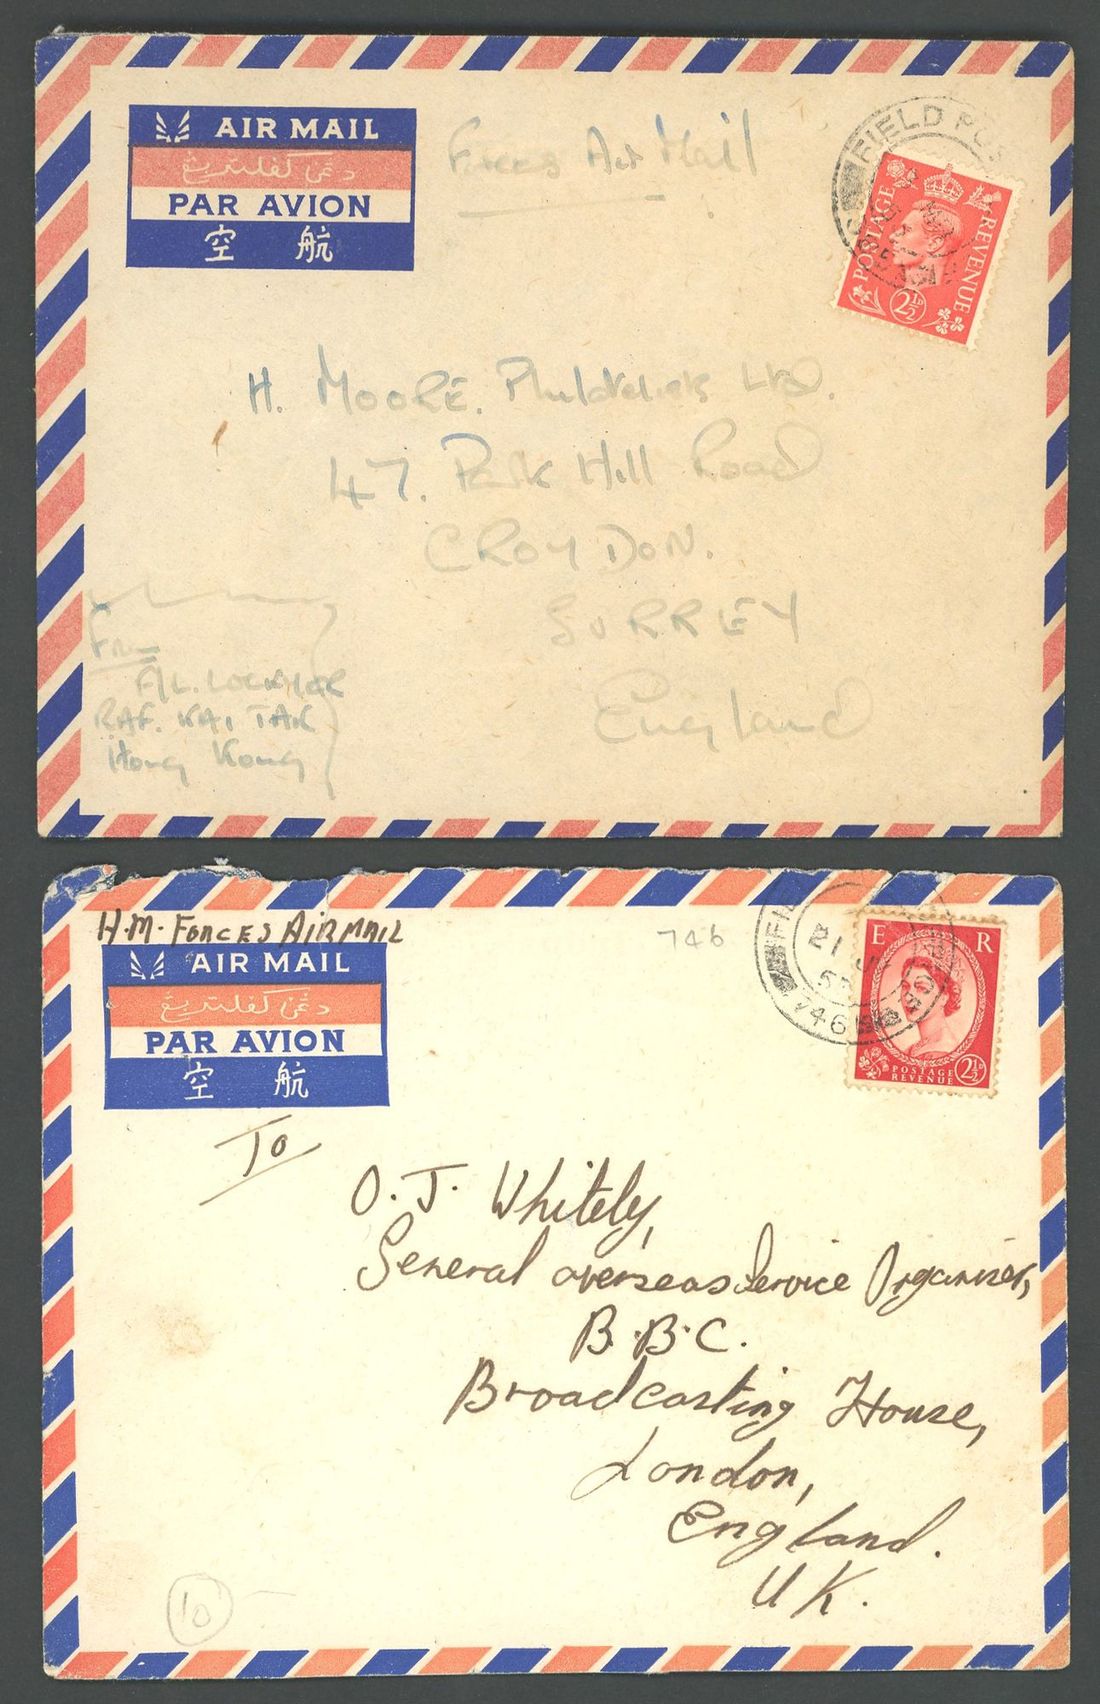 AIR MAIL
PAR AVION
空 航
Forces Air Mail
FIELD POS
POSTAGE
REVENUE
2½D
H. MOORE. Philatelists Ltd.
47. Park Hill Road
CROYDON.
SURREY
England
From
F/L. LOCKYER
RAF. KAI TAK
Hong Kong
H.M. FORCES AIRMAIL
AIR MAIL
PAR AVION
空 航
746
21 JU
746
E R
POSTAGE
REVENUE
2½D
To
O. J. Whitely,
General overseas Service Organiser,
B.B.C.
Broadcasting House,
London,
England.
U.K.
10